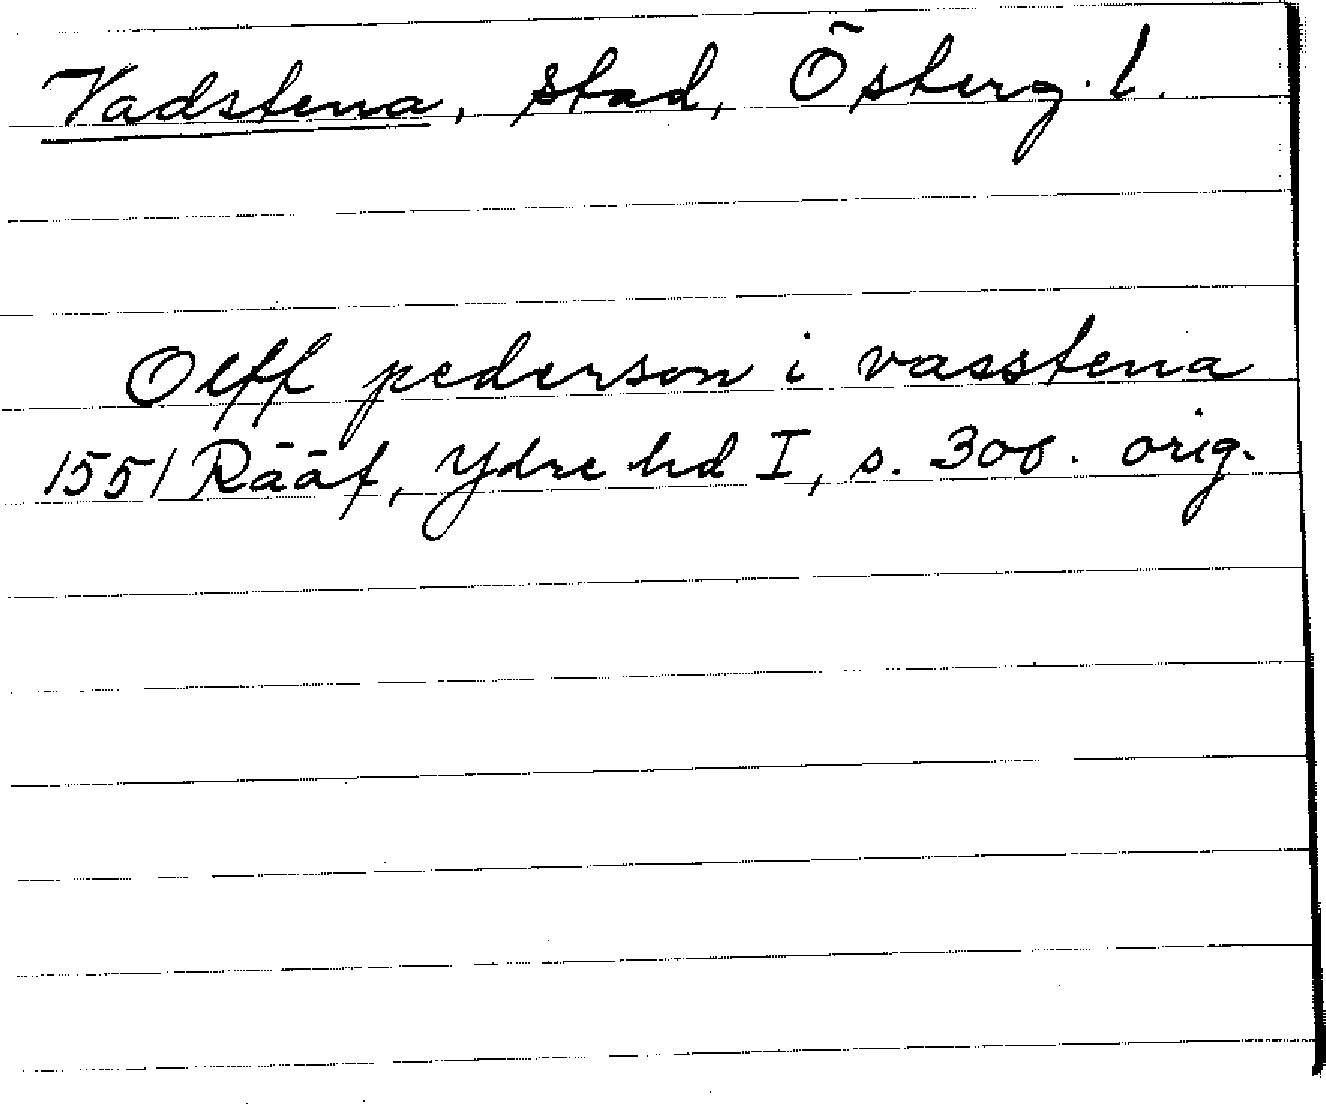 Vadstena, stad, Österg. l.
Olff pederson i vasstena
1551 Rääf, Ydre hd I, s. 308. orig.